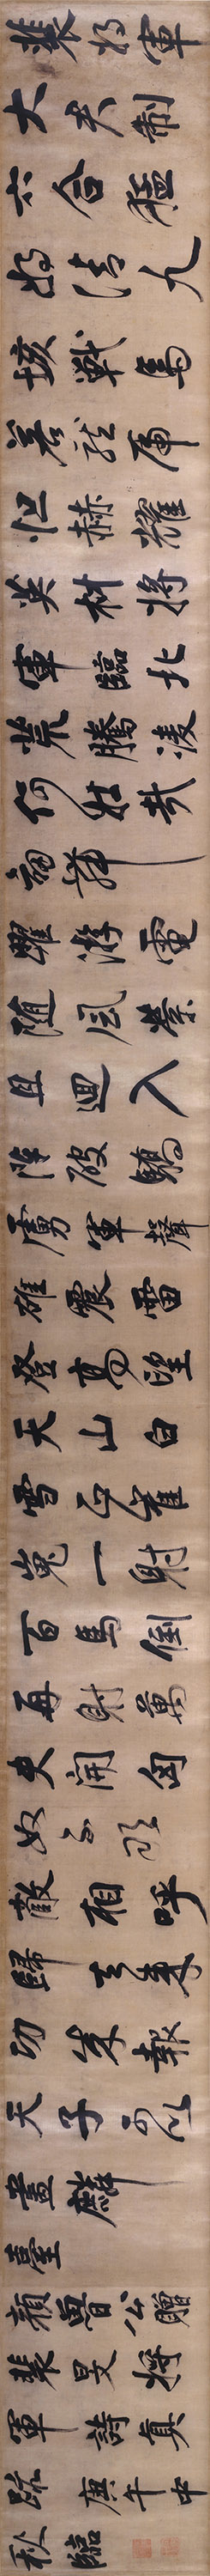 裴将軍
大君制
六合猛
将清九
垓戰馬
若龍虎
恒赫耀
英材将
軍臨北
荒騰凌
何壮哉
劍舞
躍游電
隨風縈
且迴入
陣破驕
虜軍聲
雄震雷
登高望
天山白
雪正崔
嵬一射
百馬倒
再射萬
夫開匈
奴不敢
敵相呼
歸去来
功成報
天子可以
畫麟
臺
顏魯公贈
裴旻将
軍詩真
跡庚午中
秋臨